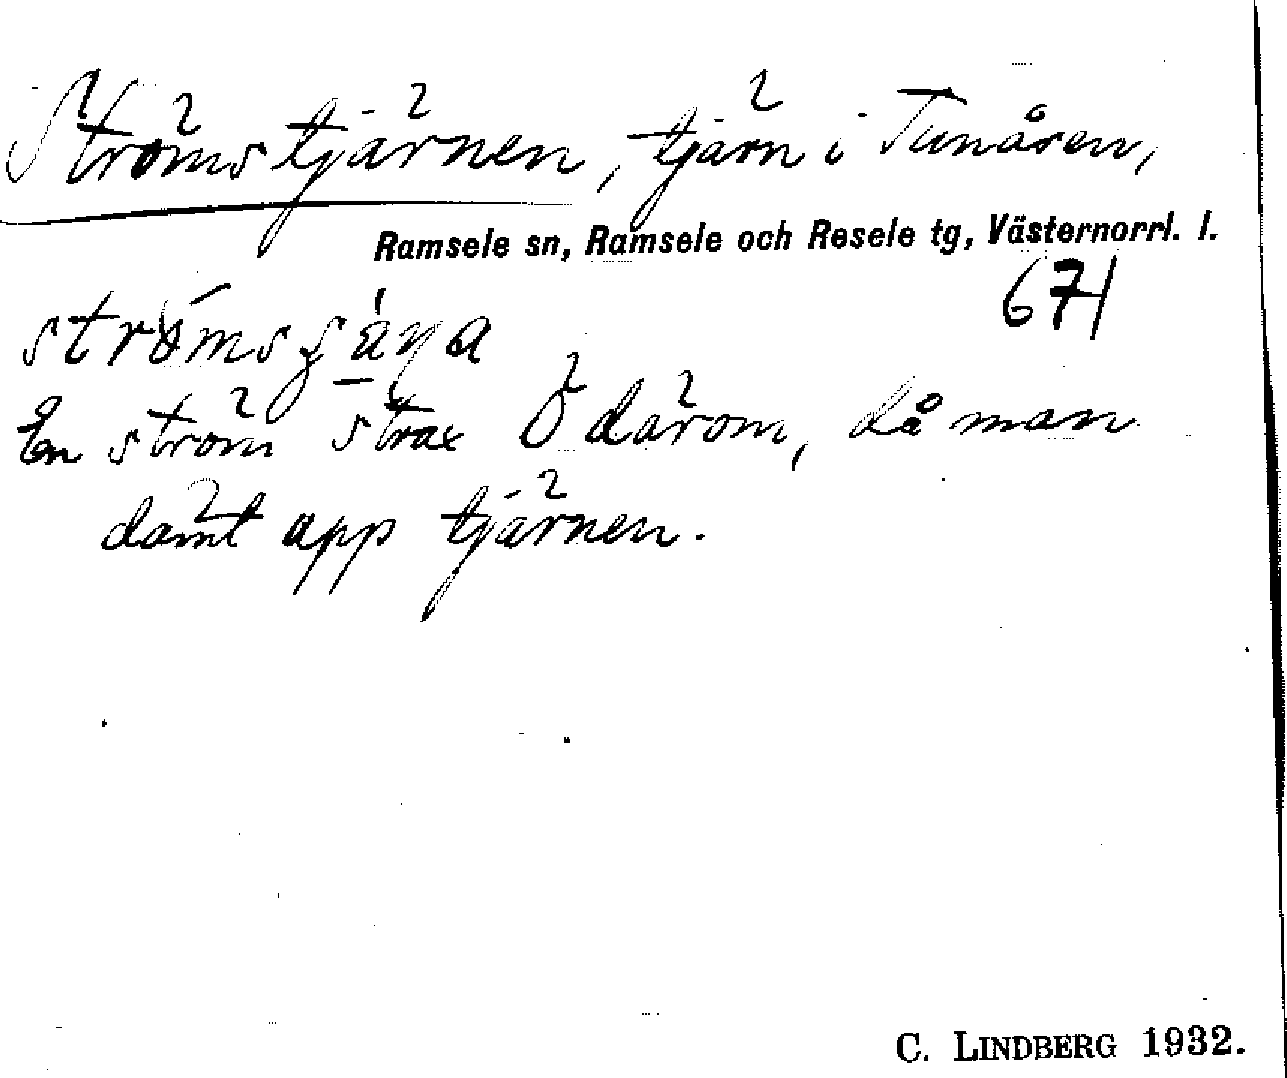 Strömstjärnen, tjärn i Tunåsen,
Ramsele sn, Ramsele och Resele tg, Västernorrl. l.
671
En ström strax Ö därom, då man
dämt upp tjärnen.
C. LINDBERG 1932.